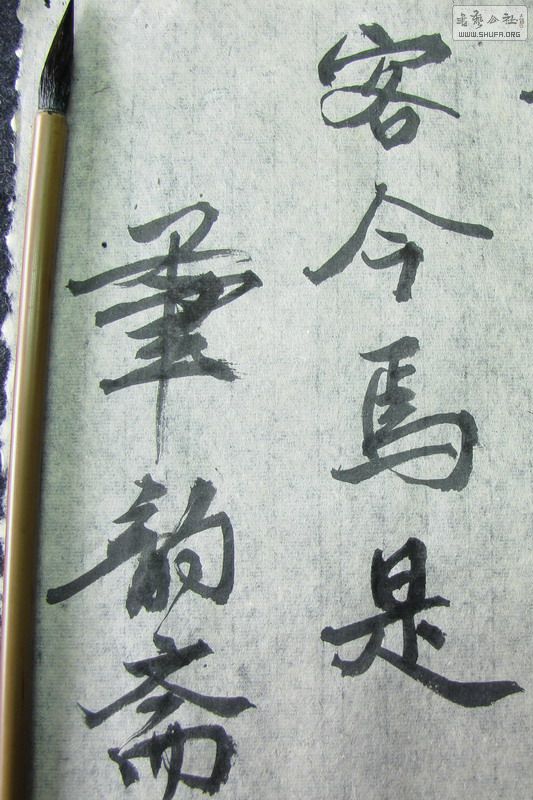 書藝公社
WWW.SHUFA.ORG
客今馬是
筆韵斋